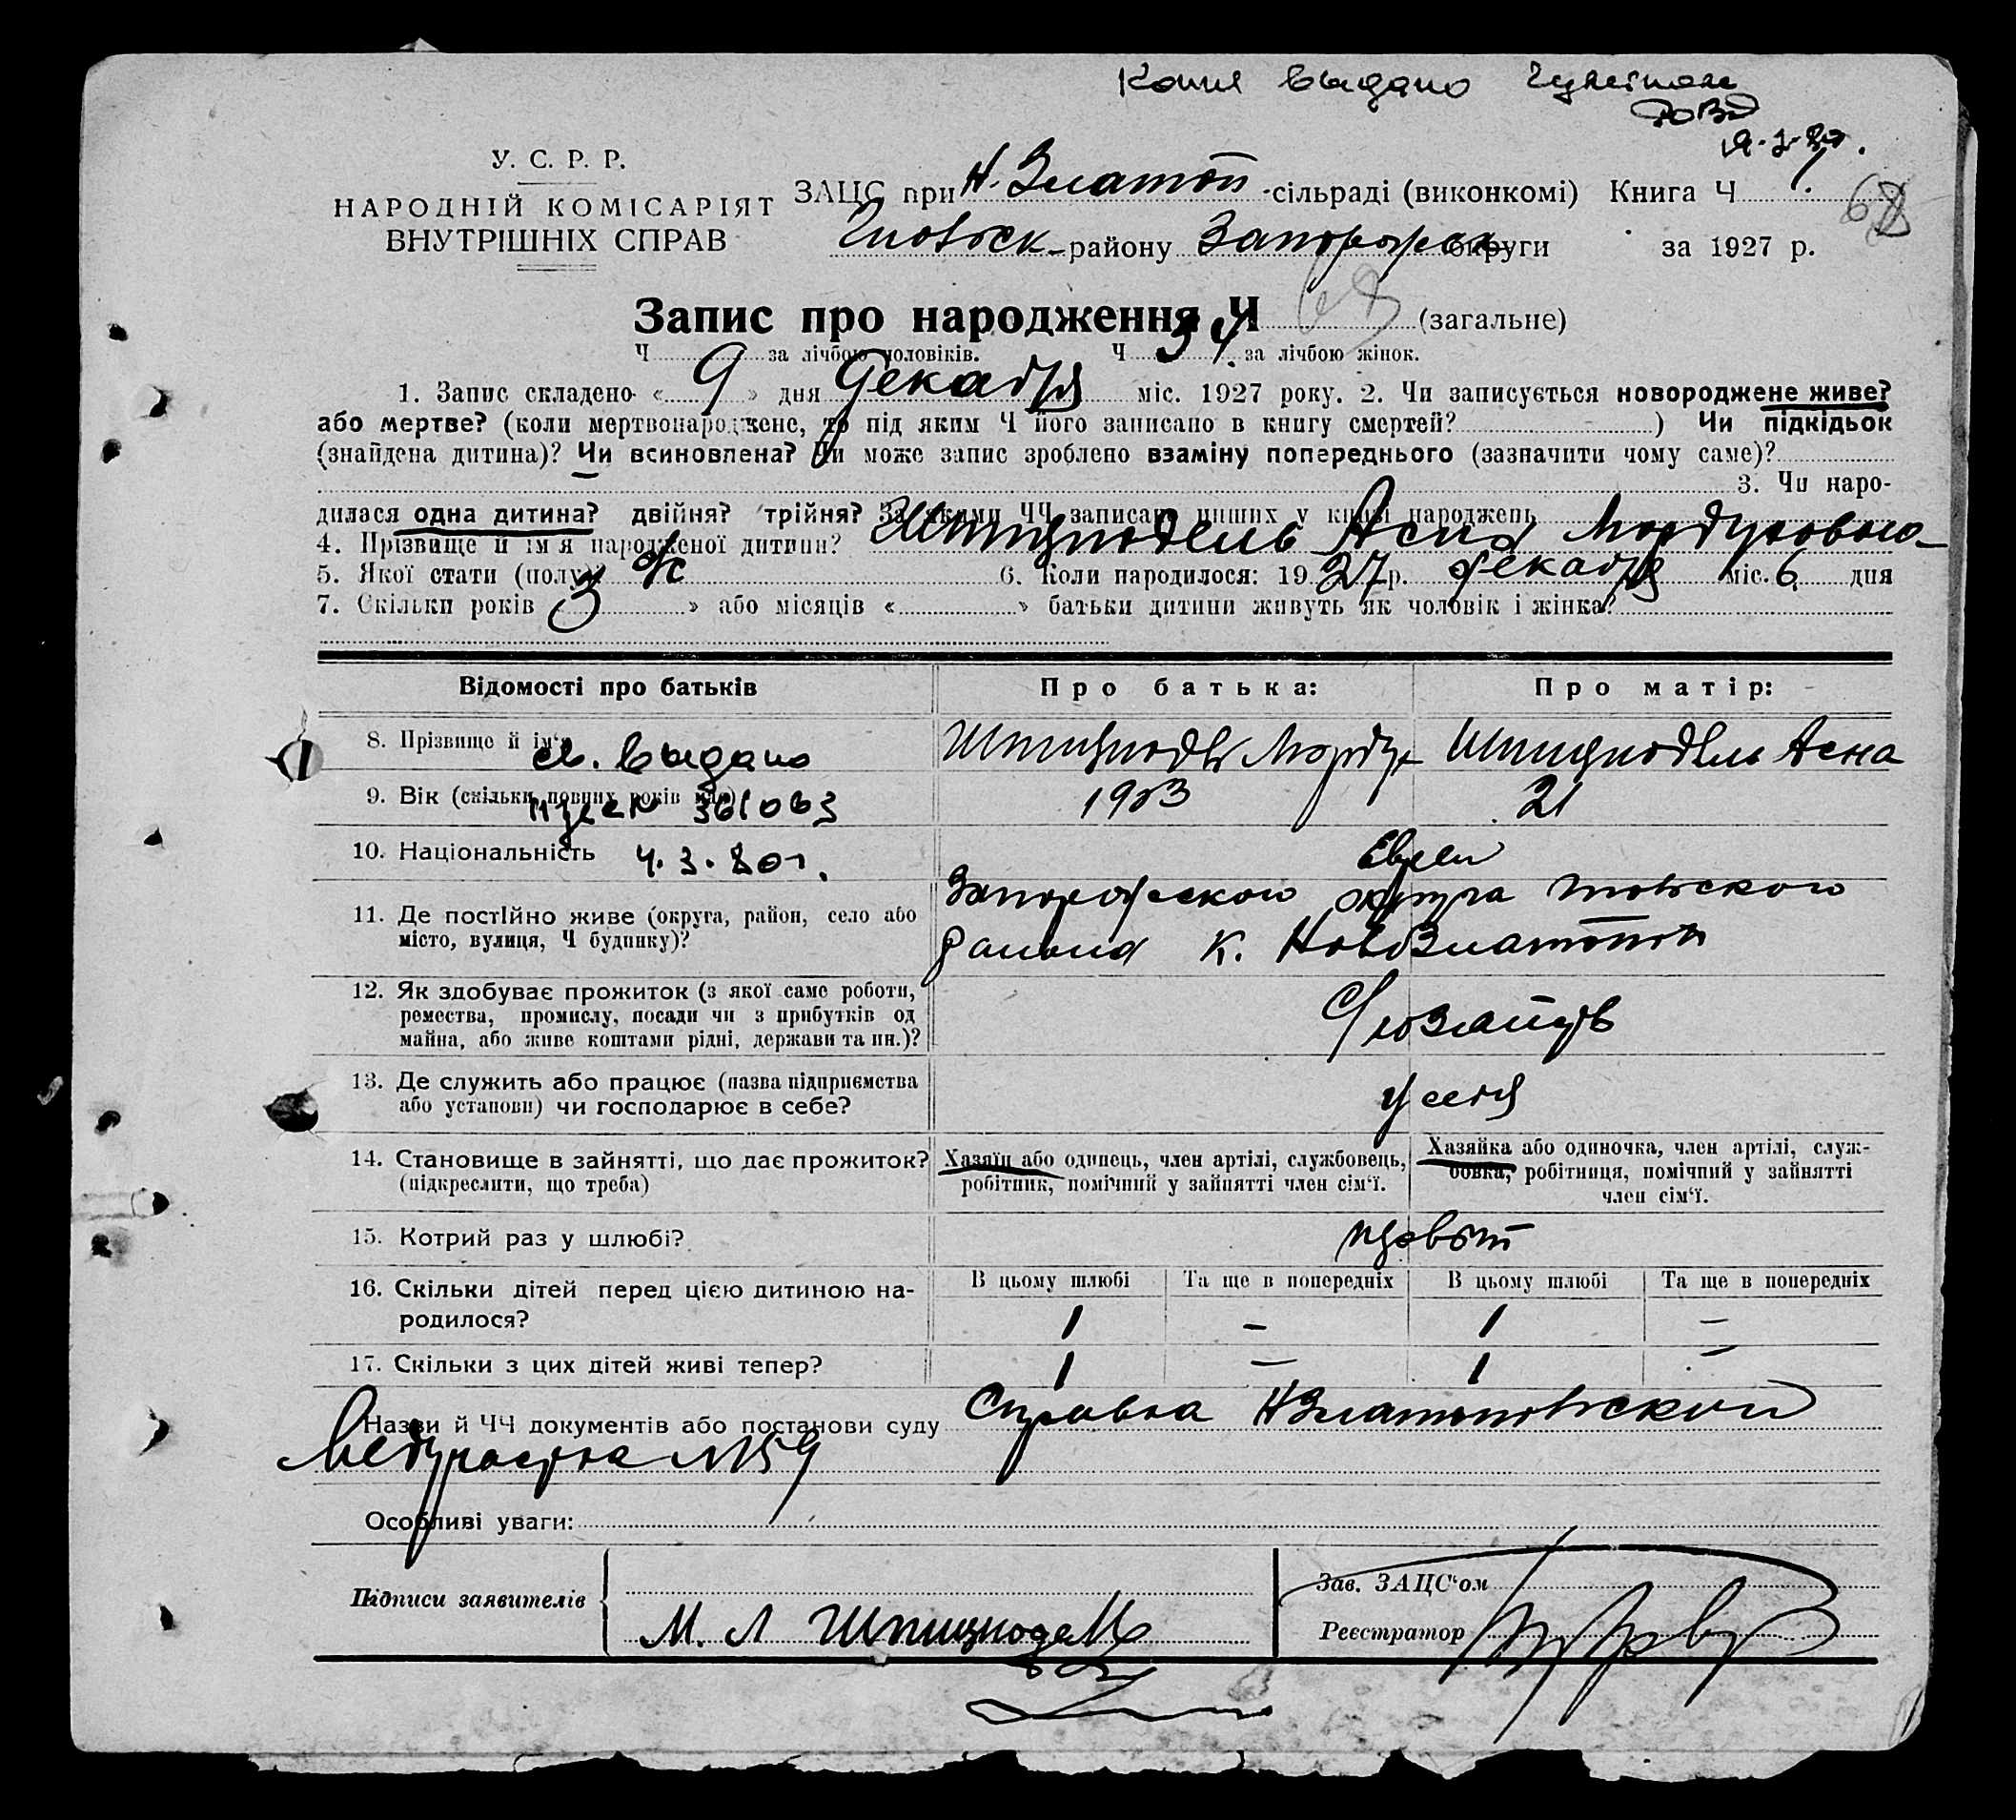 Копия выдано
РОВД
У. С. Р. Р.
НАРОДНІЙ КОМІСАРІЯТ
ВНУТРІШНІХ СПРАВ
ЗАЦС при Н. Златоп -сільраді (виконкомі) Книга Ч
району Запорожск округи за 1927 р.
68
Запис про народження Ч 68 (загальне)
Ч за лічбою чоловіків. Ч 34 за лічбою жінок.
1. Запис складено «9» дня декабря міс. 1927 року. 2. Чи записується новороджене живе?
або мертве? (коли мертвонароджене, то під яким Ч його записано в книгу смертей? ) Чи підкідьок
(знайдена дитина)? Чи всиновлена? Чи може запис зроблено взаміну попереднього (зазначити чому саме)?
3. Чи наро-
дилася одна дитина? двійня? трійня? За якими ЧЧ записано инших у книзі народжень
4. Прізвище й ім'я народженої дитини? Шпицнодель Асна Мордуховна
5. Якої стати (полу) ж 6. Коли народилося: 1927 р. декабря міс. 6 дня
7. Скільки років 3 » або місяців « » батьки дитини живуть як чоловік і жінка?
Відомості про батьків Про батька: Про матір:
8. Прізвище й ім'я Мордух Шпицнодель Асна
св. выдано
9. Вік (скільки повних років має) 1903 21
361063
10. Національність Евреи
4.3.80г.
11. Де постійно живе (округа, район, село або Запорожского округа
місто, вулиця, Ч будинку)? района к. НовоЗлатополь
12. Як здобуває прожиток (з якої саме роботи,
ремества, промислу, посади чи з прибутків од
майна, або живе коштами рідні, держави та ин.)?
13. Де служить або працює (назва підприємства у себя
або установи) чи господарює в себе?
14. Становище в зайнятті, що дає прожиток? Хазяїн або одинець, член артілі, службовець, Хазяйка або одиночка, член артілі, служ-
(підкреслити, що треба) робітник, помічний у зайнятті член сім'ї. бовка, робітниця, помічний у зайнятті
член сім'ї.
15. Котрий раз у шлюбі? первый
16. Скільки дітей перед цією дитиною на- В цьому шлюбі Та ще в попередніх В цьому шлюбі Та ще в попередніх
родилося? 1 – 1 –
17. Скільки з цих дітей живі тепер? 1 – 1 –
Назви й ЧЧ документів або постанови суду Справка НЗлатопольской
Медучастка №59
Особливі уваги:
Підписи заявителів Зав. ЗАЦС'ом
М. Л Шпицнодель Реєстратор